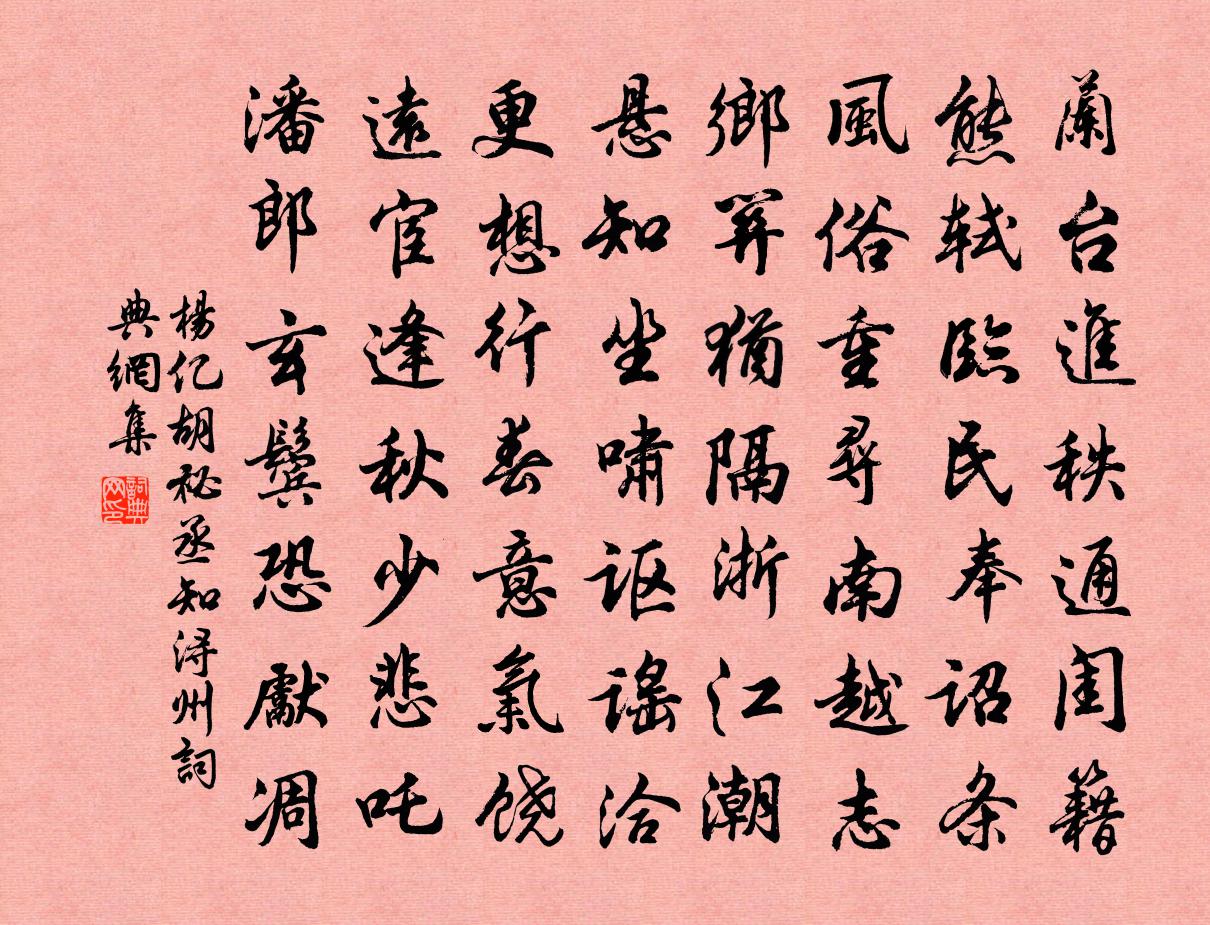 蘭台進秩通閨籍
熊軾臨民奉詔条
風俗重尋南越志
鄉關猶隔浙江潮
悬知坐嘯讴謠洽
更想行春意氣饶
遠宦逢秋少悲吒
潘郎玄鬢恐獻凋
楊亿胡祕丞知浔州詞
典網集
詞典
网印